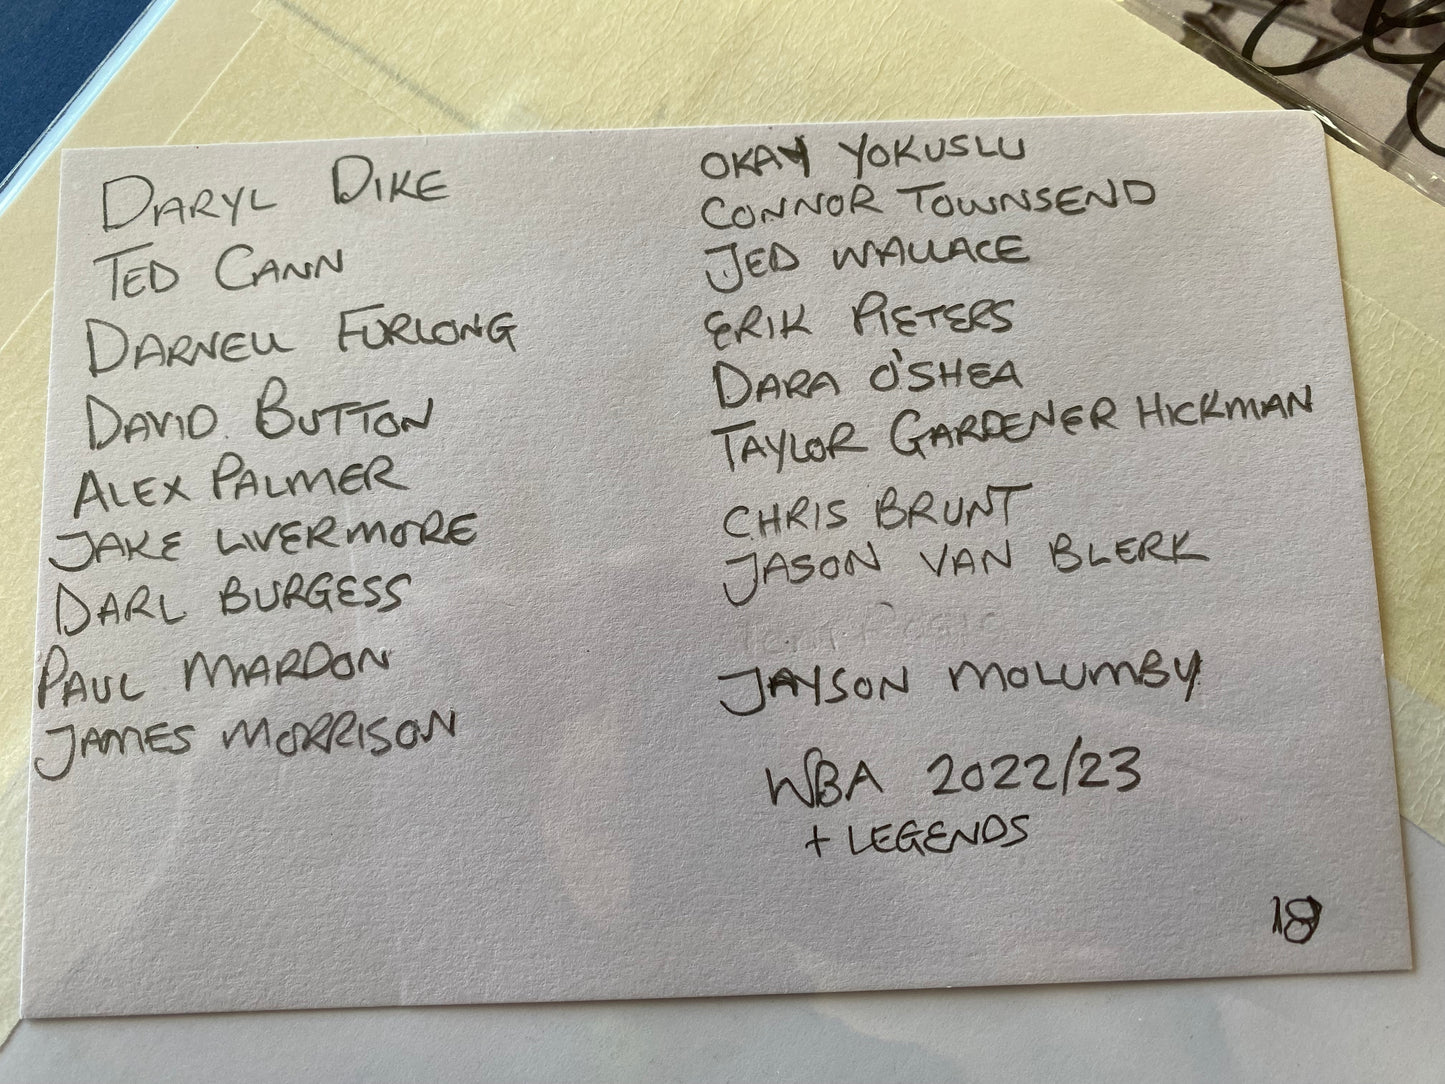 DARYL DIKE
TED CANN
DARNELL FURLONG
DAVID BUTTON
ALEX PALMER
JAKE LIVERMORE
DARL BURGESS
PAUL MARDON
JAMES MORRISON
OKAY YOKUSLU
CONNOR TOWNSEND
JED WALLACE
ERIK PIETERS
DARA O'SHEA
TAYLOR GARDENER HICKMAN
CHRIS BRUNT
JASON VAN BLERK
JAYSON MOLUMBY
WBA 2022/23
+ LEGENDS
18